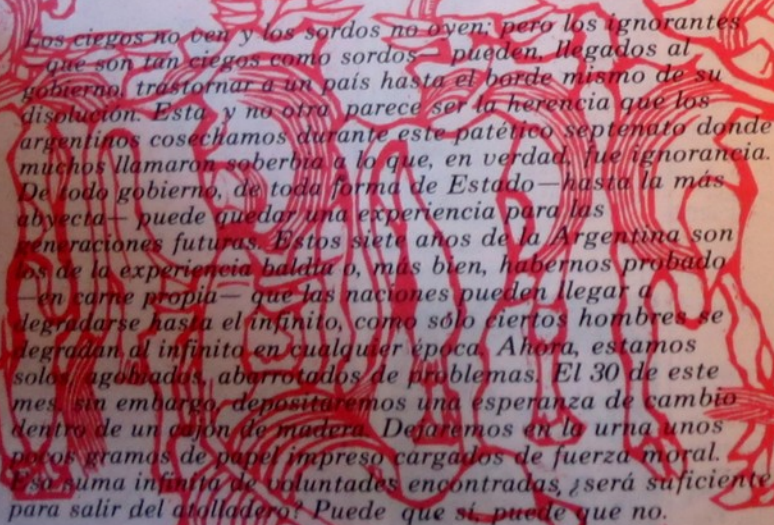 Los ciegos no ven y los sordos no oyen; pero los ignorantes
—que son tan ciegos como sordos— pueden, llegados al
gobierno, trastornar a un país hasta el borde mismo de su
disolución. Esta y no otra parece ser la herencia que los
argentinos cosechamos durante este patético septenato donde
muchos llamaron soberbia a lo que, en verdad, fue ignorancia.
De todo gobierno, de toda forma de Estado—hasta la más
abyecta— puede quedar una experiencia para las
generaciones futuras. Estos siete años de la Argentina son
los de la experiencia baldía o, más bien, habernos probado
—en carne propia— que las naciones pueden llegar a
degradarse hasta el infinito, como sólo ciertos hombres se
degradan al infinito en cualquier época. Ahora, estamos
solos, agobiados, abarrotados de problemas. El 30 de este
mes, sin embargo, depositaremos una esperanza de cambio
dentro de un cajón de madera. Dejaremos en la urna unos
pocos gramos de papel impreso cargados de fuerza moral.
Esa suma infinita de voluntades encontradas, ¿será suficiente
para salir del atolladero? Puede que sí, puede que no.